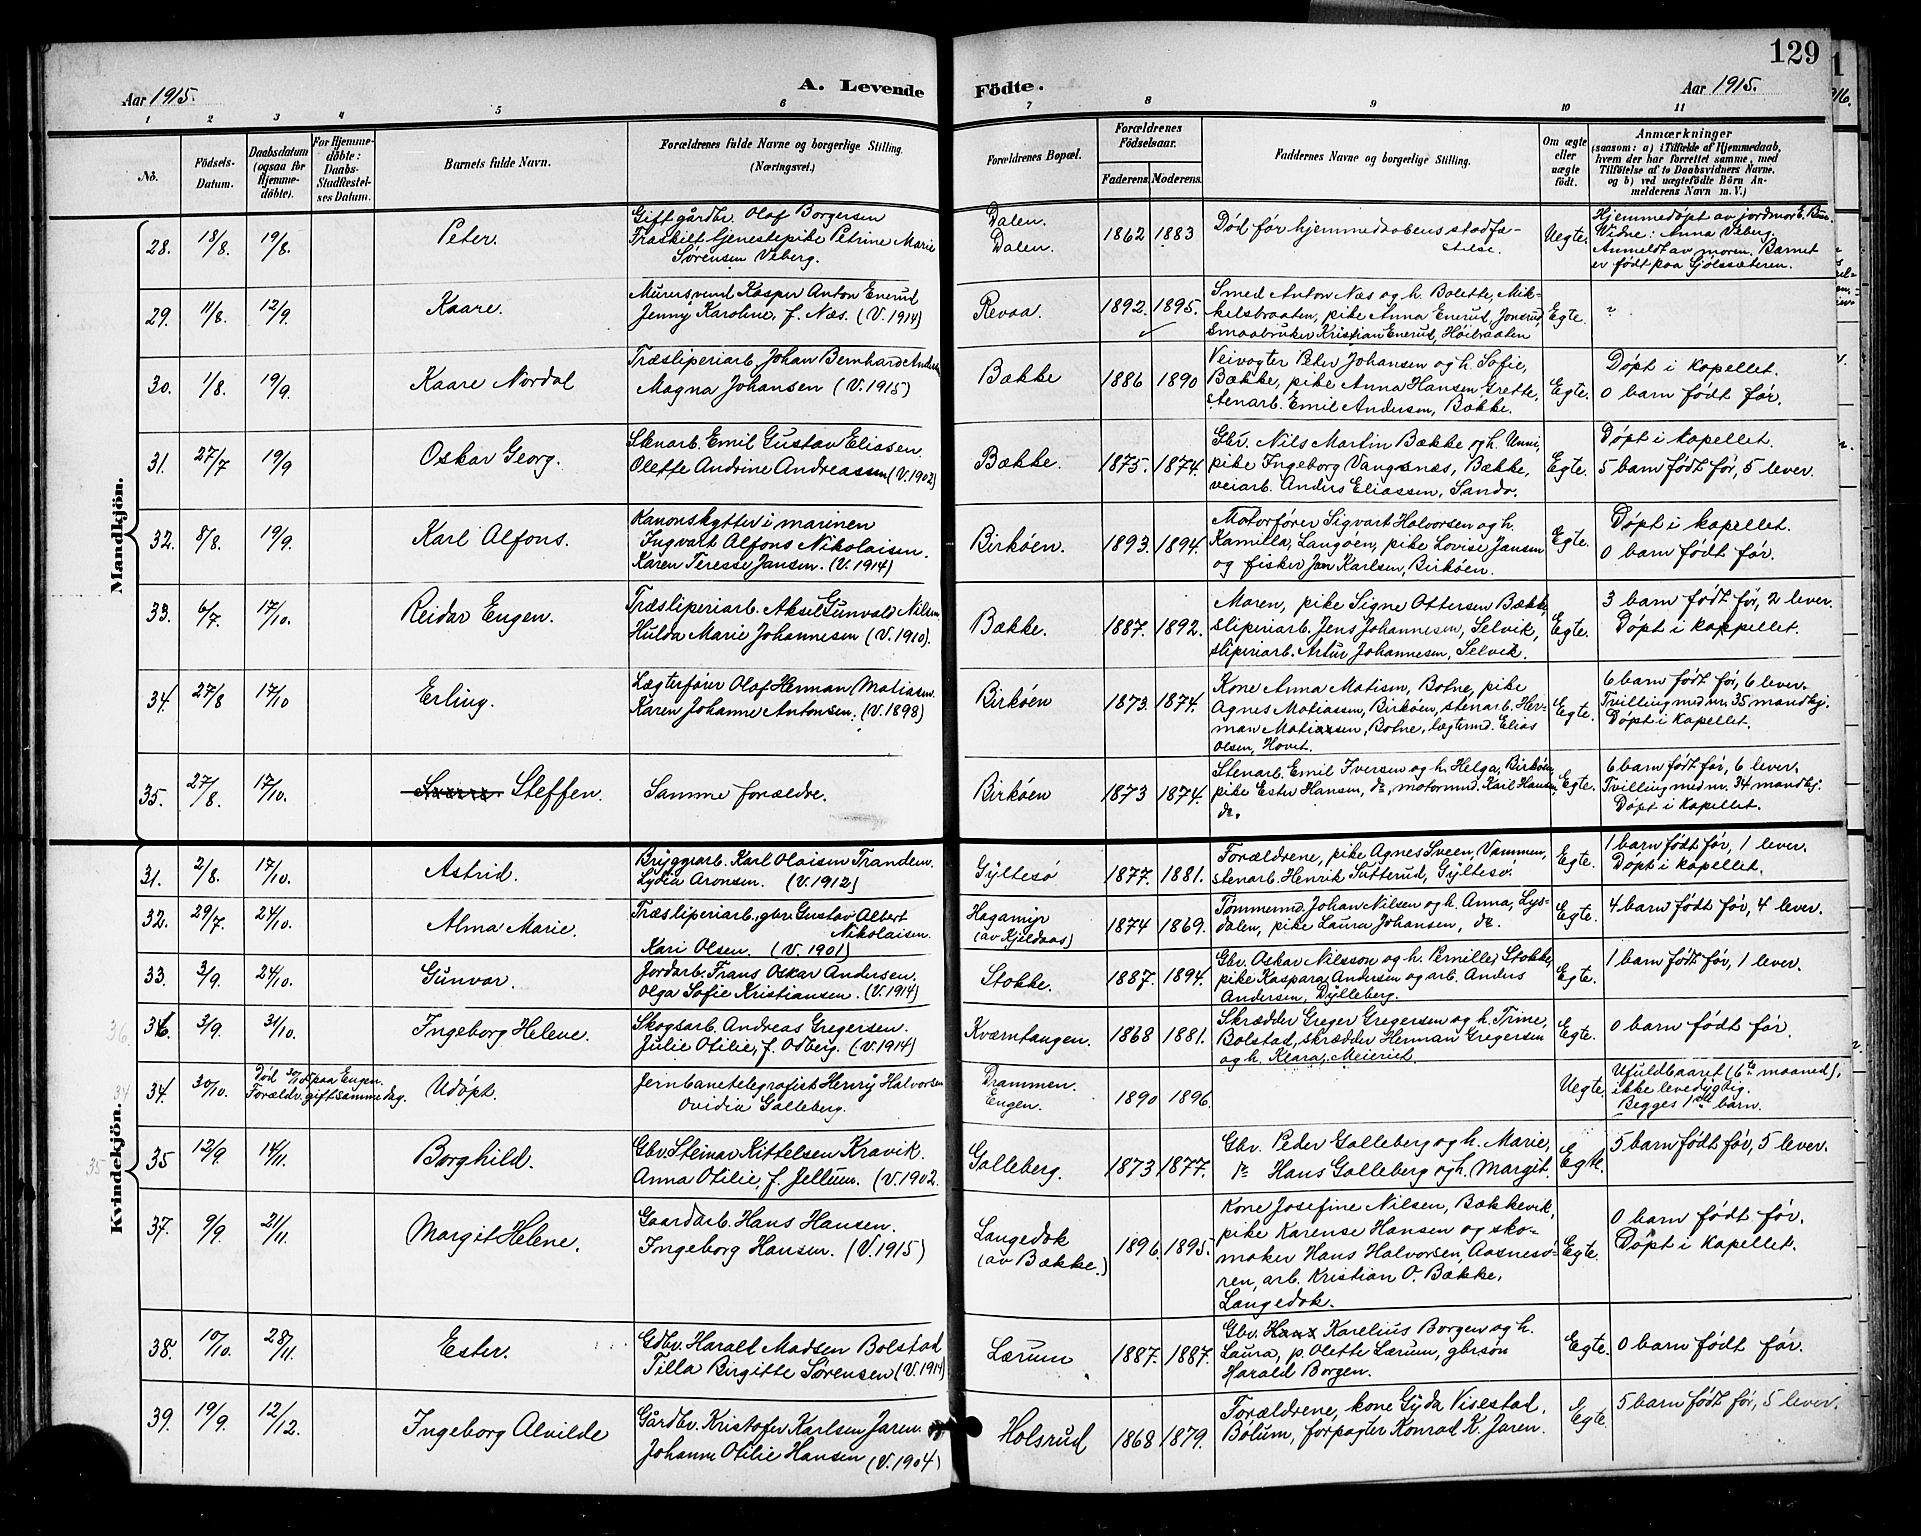 129
Aar 1915.
A. Levende
Födte.
Aar 1915.
1 2 3 4 5 6 7 8 9 10 11
No.
Födsels-
Datum.
Daabsdatum
(ogsaa for
Hjemme-
døbte).
For Hjemme-
döbte:
Daabs-
Stadfæstel-
ses Datum.
Barnets fulde Navn.
Forældrenes fulde Navne og borgerlige Stilling.
(Næringsvei.)
Forældrenes Bopæl.
Forældrenes
Födselsaar.
Faderens. Moderens.
Faddernes Navne og borgerlige Stilling.
Om ægte
eller
uægte
födt.
Anmærkninger
(saasom: a) i Tilfælde af Hjemmedaab,
hvem der har forrettet samme, med
Tilföielse af to Daabsvidners Navne,
og b) ved uægtefödte Börn An-
melderens Navn m. V.)
Mandkjön.
28. 18/8. 19/8. Peter.
Gift gårdbr. Olaf Borgersen
Fraskilt tjenestepike Petrine Marie
Sørensen Veberg.
Dalen.
Dalen.
1862 1883
Død før hjemmedaabens stadfæ-
stelse.
Uegte.
Hjemmedøpt av jordmor
Vidne: Anna Veberg.
Anmeldt av moren. Barnet
er født paa Gjølssæteren.
29. 11/8. 12/9. Kaare.
Murersvend Kasper Anton Enerud
Jenny Karoline, f. Næs. (V. 1914)
Revaa.
1892. 1895.
Smed Anton Næs og h. Bolette, Mik-
kelsbraaten, pike Anna Enerud, Jonsrud,
Smaabruker Kristian Enerud, Høibraaten
Egte.
"
30. 1/8. 19/9. Kaare Nordal
Træsliperiarb. Johan Bernhard
Magna Johansen (V. 1915)
Bække
1886 1890
Veivogter Peter Johansen og h. Sofie,
Bække, pike Anna Hansen Grette,
stenarb. Emil Andersen, Bække.
Egte.
Døpt i kapellet.
0 barn født før.
31. 27/7 19/9 Oskar Georg.
Stenarb. Emil Gustav Eliasen.
Olette Andrine Andreassen (V. 1902)
Bække.
1875. 1874.
Gbr. Nils Martin Bække og h. Unni,
pike Ingeborg Vangsnæs, Bække,
veiarb. Anders Eliassen, Sando.
Egte.
Døpt i kapellet.
5 barn født før, 5 lever.
32. 8/8. 19/9. Karl Alfons.
Kanonskytter i marinen
Ingvart Alfons Nikolaisen.
Karen Teresse Jansen. (V. 1914)
Birkøen.
1893. 1894.
Motorfører Sigvart Halvorsen og h.
Kamilla, Langøen, pike Lovise Jansen
og fisker Jan Karlsen, Birkøen.
Egte.
Døpt i kapellet.
0 barn født før.
33. 6/7. 17/10. Reidar Engen.
Træsliperiarb. Aksel Gunvald Nilsen.
Hulda Marie Johannesen (V. 1910).
Bække.
1887. 1892.
Moren, pike Signe Ottersen Bække,
sliperiarb. Jens Johannesen, Selvik,
sliperiarb. Artur Johannesen, Selvik.
Egte.
3 barn født før, 2 lever.
Døpt i kappellet.
34. 27/8 17/10 Erling.
Lægterfører Olaf Herman Matiasen.
Karen Johanne Antonsen. (V. 1898)
Birkøen
1873. 1874.
Kone Anna Matisen, Botne, pike
Agnes Matiassen, Birkøen, stenarb. Her-
man Matiassen, Botne, lægtermd. Elias
Olsen, Hovet.
Egte.
6 barn født før, 6 lever.
Tvilling med nr. 35 mandkj.
Døpt i kapellet.
35. 27/8. 17/10. Steffen.
Samme forældre.
Birkøen
1873 1874.
Stenarb. Emil Iversen og h. Helga, Birkøen,
pike Ester Hansen, do, motormd. Karl Hansen,
do.
Egte.
6 barn født før, 6 lever.
Tvilling med nr. 34 mandkj.
Døpt i kapellet.
Kvindekjön.
31. 2/8. 17/10. Astrid.
Bryggarb. Karl Olaisen Trandem.
Lydia Aronsen. (V. 1912)
Gyltesø
1877. 1881.
Forældrene, pike Agnes Sveen, Vammen,
stenarb. Henrik Sutterud, Gyltesø.
Egte.
1 barn født før, 1 lever.
Døpt i kapellet.
32. 29/7. 24/10. Alma Marie.
Træsliperiarb., gbr. Gustav Albert
Nikolaisen.
Kari Olsen. (V. 1901)
Hagamyr
(av Kjeldaas)
1874 1869.
Tømmermd. Johan Nilsen og h. Anna, Lys-
dalen, pike Laura Johansen, do.
Egte.
4 barn født før, 4 lever.
33. 3/9. 24/10. Gunvor.
Jordarb. Frans Oskar Andersen.
Olga Sofie Kristiansen. (V. 1914)
Stokke.
1887. 1894.
Gbr. Oskar Nilsson og h. Pernille, Stokke,
pike Kaspara Andersen og arb. Anders
Andersen, Dylleberg.
Egte.
1 barn født før, 1 lever.
36. 3/9. 31/10. Ingeborg Helene.
Skogsarb. Andreas Gregersen.
Julie Otilie, f. Odberg. (V. 1914)
Kværntangen.
1868 1881.
Skrædder Greger Gregersen og h. Trine,
Bolstad, skrædder Herman Gregersen
og h. Klara, Meieriet.
Egte.
0 barn født før.
34. 30/10. Død 30/10 paa Engen.
Forældr. gift samme dag.
Udøpt.
Jernbanetelegrafist Henry Halvorsen
Ovidia Galleberg.
Drammen.
Engen.
1890 1896.
Uegte.
Ufuldbaaret (6te maaned),
ikke levedygtig.
Begges 1ste barn.
35 12/9. 14/11. Borghild.
Gbr. Steinar Kittelsen Kravik.
Anna Otilie, f. Jellum. (V. 1902.
Galleberg.
1873 1877.
Gbr. Peder Galleberg og h. Marie,
do Hans Galleberg og h. Margit.
Egte.
5 barn født før, 5 lever.
37. 9/9. 21/11. Margit Helene.
Gaardarb. Hans Hansen.
Ingeborg Hansen. (V. 1915)
Langedok
(av Bække.)
1896. 1895.
Kone Josefine Nilsen, Bækkevik,
pike Karense Hansen og sko-
maker Hans Halvorsen, Aasnesø-
ren, arb. Kristian O. Bække,
Langedok.
Egte.
0 barn født før.
Døpt i kapellet.
38. 10/10. 28/11. Ester.
Gdbr. Haralt Madsen Bolstad
Tilla Birgitte Sørensen (V. 1914)
Lærum
1887. 1887.
Gbr. Karelius Borgen og h.
Laura, p. Olette Lærum, gbrsøn
Harald Borgen.
Egte.
0 barn født før.
39. 19/9. 12/12. Ingeborg Alvilde
Gårdbr. Kristofer Karlsen Jaren.
Johanne Otilie Hansen (V. 1904)
Holsrud
1868 1879.
Forældrene, kone Gyda Visestad,
Bølum, forpagter Konrad K. Jaren.
Egte.
5 barn født før, 5 lever.